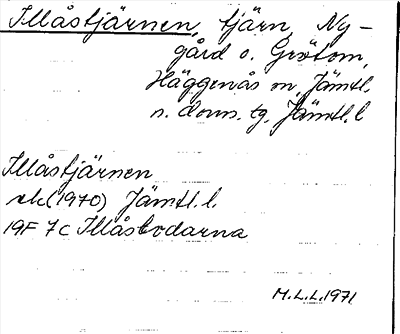 Illåstjärnen, tjärn, Ny-
gård o. Grötom,
Häggenås sn, Jämtl.
n. doms. tg, Jämtl. l
Illåstjärnen
ek (1970) Jämtl. l.
19F 7c Illåsbodarna
M.L.L. 1971